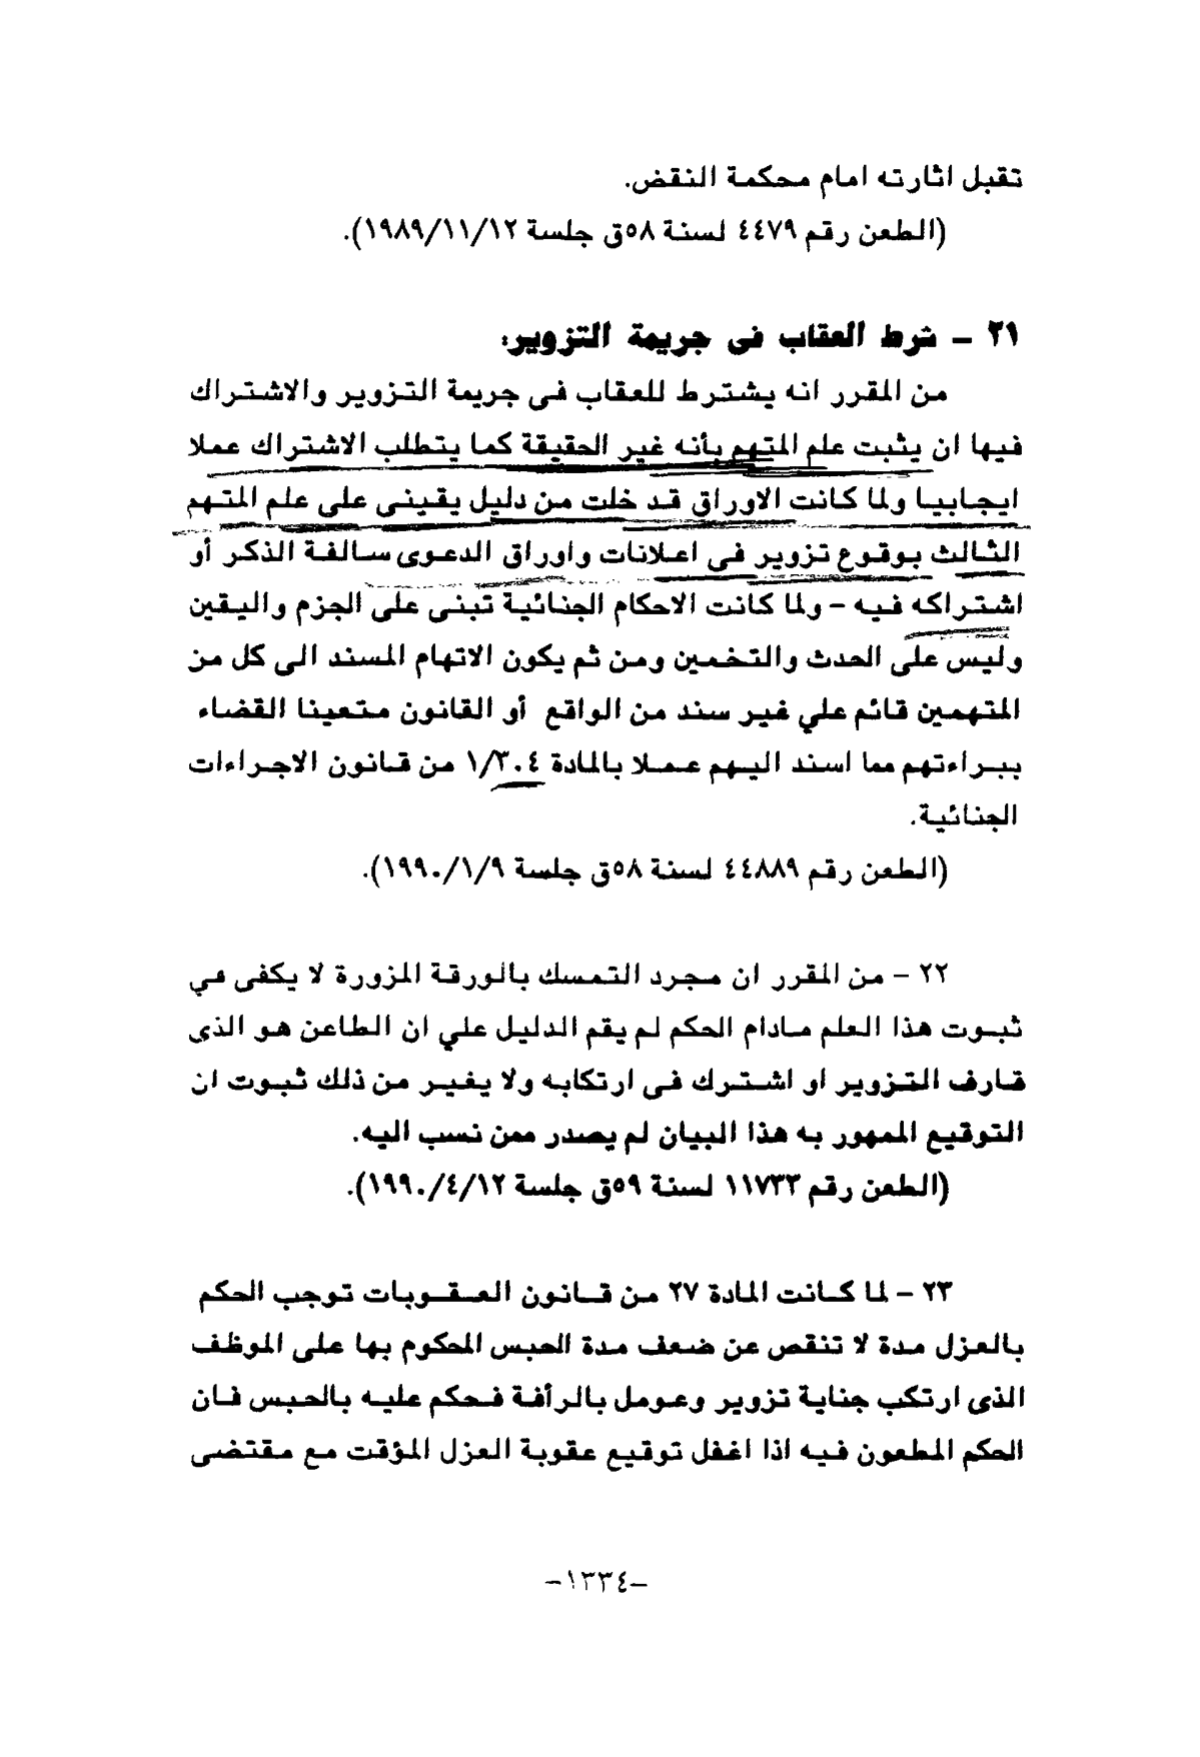 تقبل اثارته امام محكمة النقض.
(الطعن رقم ٤٤٧٩ لسنة ٥٨ق جلسة ١٩٨٩/١١/١٢).
٢١ – شرط العقاب فى جريمة التزوير:
من المقرر انه يشترط للعقاب فى جريمة التزوير والاشتراك
فيها ان يثبت علم المتهم بأنه غير الحقيقة كما يتطلب الاشتراك عملا
ايجابيا ولما كانت الاوراق قد خلت من دليل يقينى على علم المتهم
الثالث بوقوع تزوير فى اعلانات واوراق الدعوى سالفة الذكر أو
اشتراكه فيه – ولما كانت الاحكام الجنائية تبنى على الجزم واليقين
وليس على الحدث والتخمين ومن ثم يكون الاتهام المسند الى كل من
المتهمين قائم علي غير سند من الواقع أو القانون متعينا القضاء
ببراءتهم مما اسند اليهم عملا بالمادة ١/٣٠٤ من قانون الاجراءات
الجنائية.
(الطعن رقم ٤٤٨٨٩ لسنة ٥٨ق جلسة ١٩٩٠/١/٩).
٢٢ – من المقرر ان مجرد التمسك بالورقة المزورة لا يكفى في
ثبوت هذا العلم مادام الحكم لم يقم الدليل علي ان الطاعن هو الذى
قارف التزوير او اشترك فى ارتكابه ولا يغير من ذلك ثبوت ان
التوقيع الممهور به هذا البيان لم يصدر ممن نسب اليه.
(الطعن رقم ١١٧٣٣ لسنة ٥٩ق جلسة ١٩٩٠/٤/١٢).
٢٣ – لما كانت المادة ٢٧ من قانون العقوبات توجب الحكم
بالعزل مدة لا تنقص عن ضعف مدة الحبس المحكوم بها على الموظف
الذى ارتكب جناية تزوير وعومل بالرأفة فحكم عليه بالحبس فان
الحكم المطعون فيه اذا اغفل توقيع عقوبة العزل المؤقت مع مقتضى
–١٣٣٤–